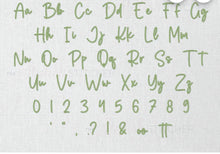 Aa Bb Cc Dd Ee Ff Gg
Hh Ii Jj Kk Ll Mm
Nn Oo Pp Qq Rr Ss Tt
Uu Vv Ww Xx Yy Zz
0 1 2 3 4 5 6 7 8 9
' " , . ? ! &